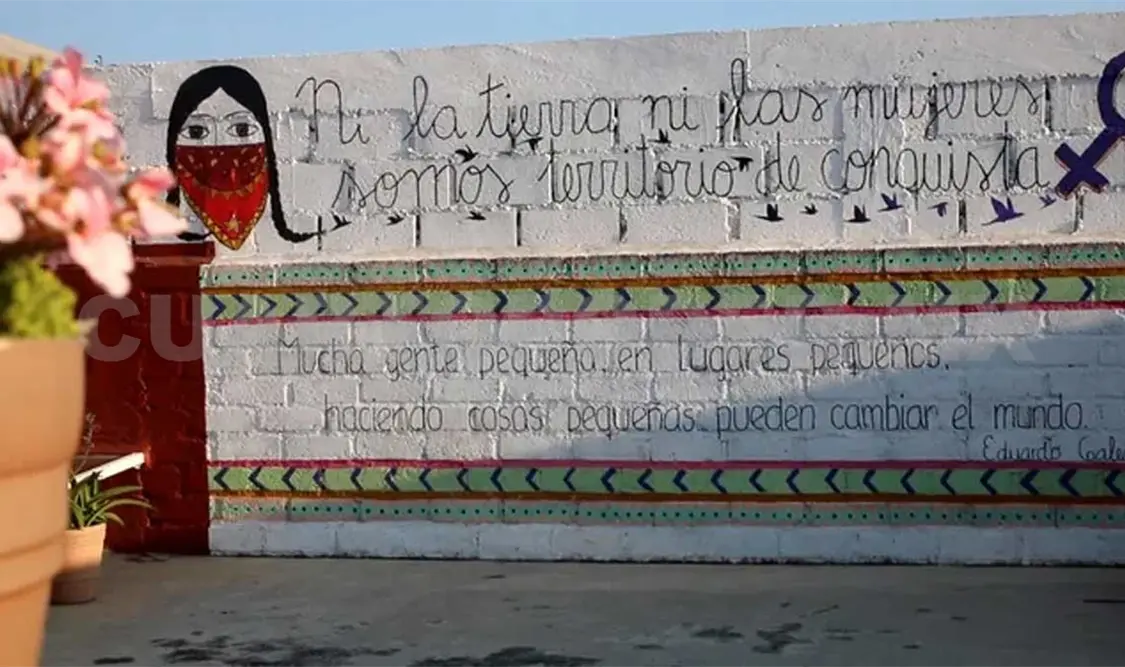 Ni la tierra ni las mujeres
somos territorio de conquista
Mucha gente pequeña, en lugares pequeños,
haciendo cosas pequeñas pueden cambiar el mundo.
Eduardo Gale